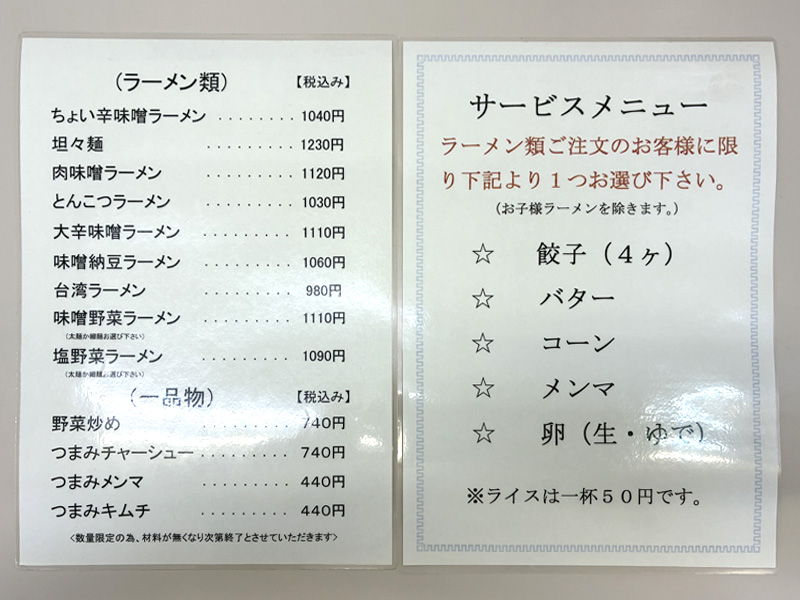 (ラーメン類) 【税込み】
ちょい辛味噌ラーメン ........ 1040円
坦々麺 ......... 1230円
肉味噌ラーメン ......... 1120円
とんこつラーメン ......... 1030円
大辛味噌ラーメン ......... 1110円
味噌納豆ラーメン ......... 1060円
台湾ラーメン ......... 980円
味噌野菜ラーメン ......... 1110円
(太麺か細麺お選び下さい)
塩野菜ラーメン ......... 1090円
(太麺か細麺お選び下さい)
(一品物) 【税込み】
野菜炒め ......... 740円
つまみチャーシュー ......... 740円
つまみメンマ ......... 440円
つまみキムチ ......... 440円
<数量限定の為、材料が無くなり次第終了とさせていただきます>
サービスメニュー
ラーメン類ご注文のお客様に限
り下記より1つお選び下さい。
(お子様ラーメンを除きます。)
☆ 餃子（４ヶ）
☆ バター
☆ コーン
☆ メンマ
☆ 卵（生・ゆで）
※ライスは一杯５０円です。